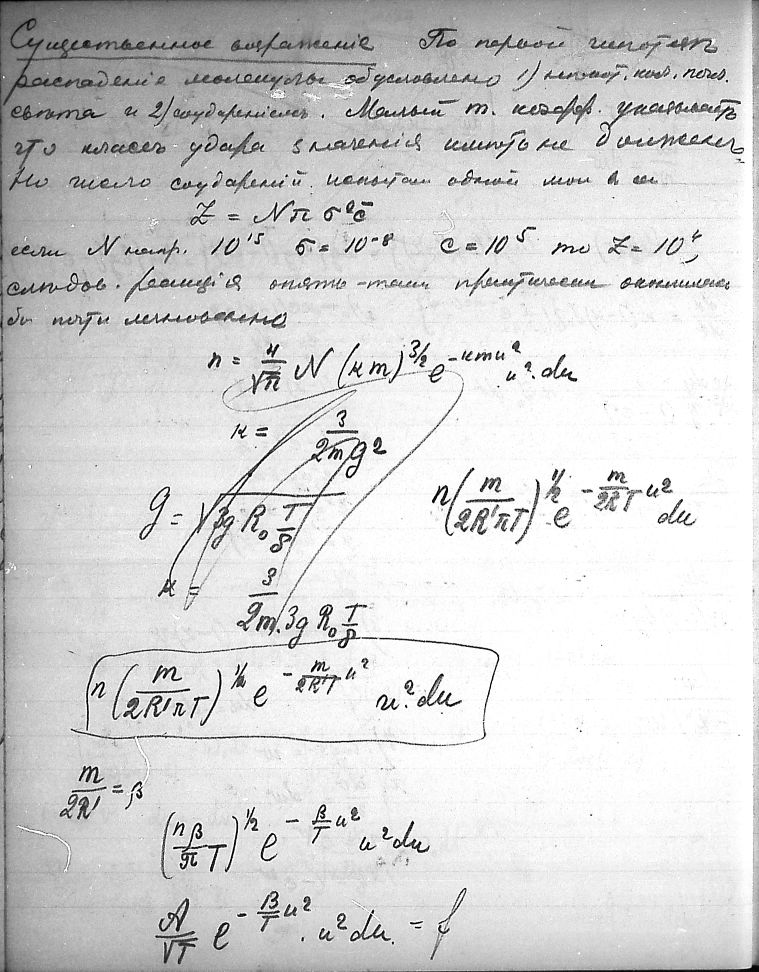 Существенное возраженіе По первой гипотезѣ
распаденіе молекулы обусловлено 1)
свѣта и 2) соудареніемъ. Малый т. коэфф. указываетъ
что классъ удара значенія имѣть не долженъ.
Но число соудареній одной мол
Z = Nπσ²c̄
если N напр. 10¹⁵ σ = 10⁻⁸ c = 10⁵ то Z = 10⁴,
слѣдов. реакція опять-таки практически
бы почти мгновенно
n = 4/√π N (κm)^{3/2} e^{-κmu²} u² du
κ = 3/2mg²
g = √3g R₀ T/δ
n(m/2R'πT)^{1/2} e^{-m/2RT u²} du
κ = 3/2m.3g R₀ T/δ
n(m/2R'πT)^{1/2} e^{-m/2R'T u²} u².du
m/2R' = β
(nβ/π T)^{1/2} e^{-β/T u²} u² du
A/√T e^{-β/T u²} . u² du. = f